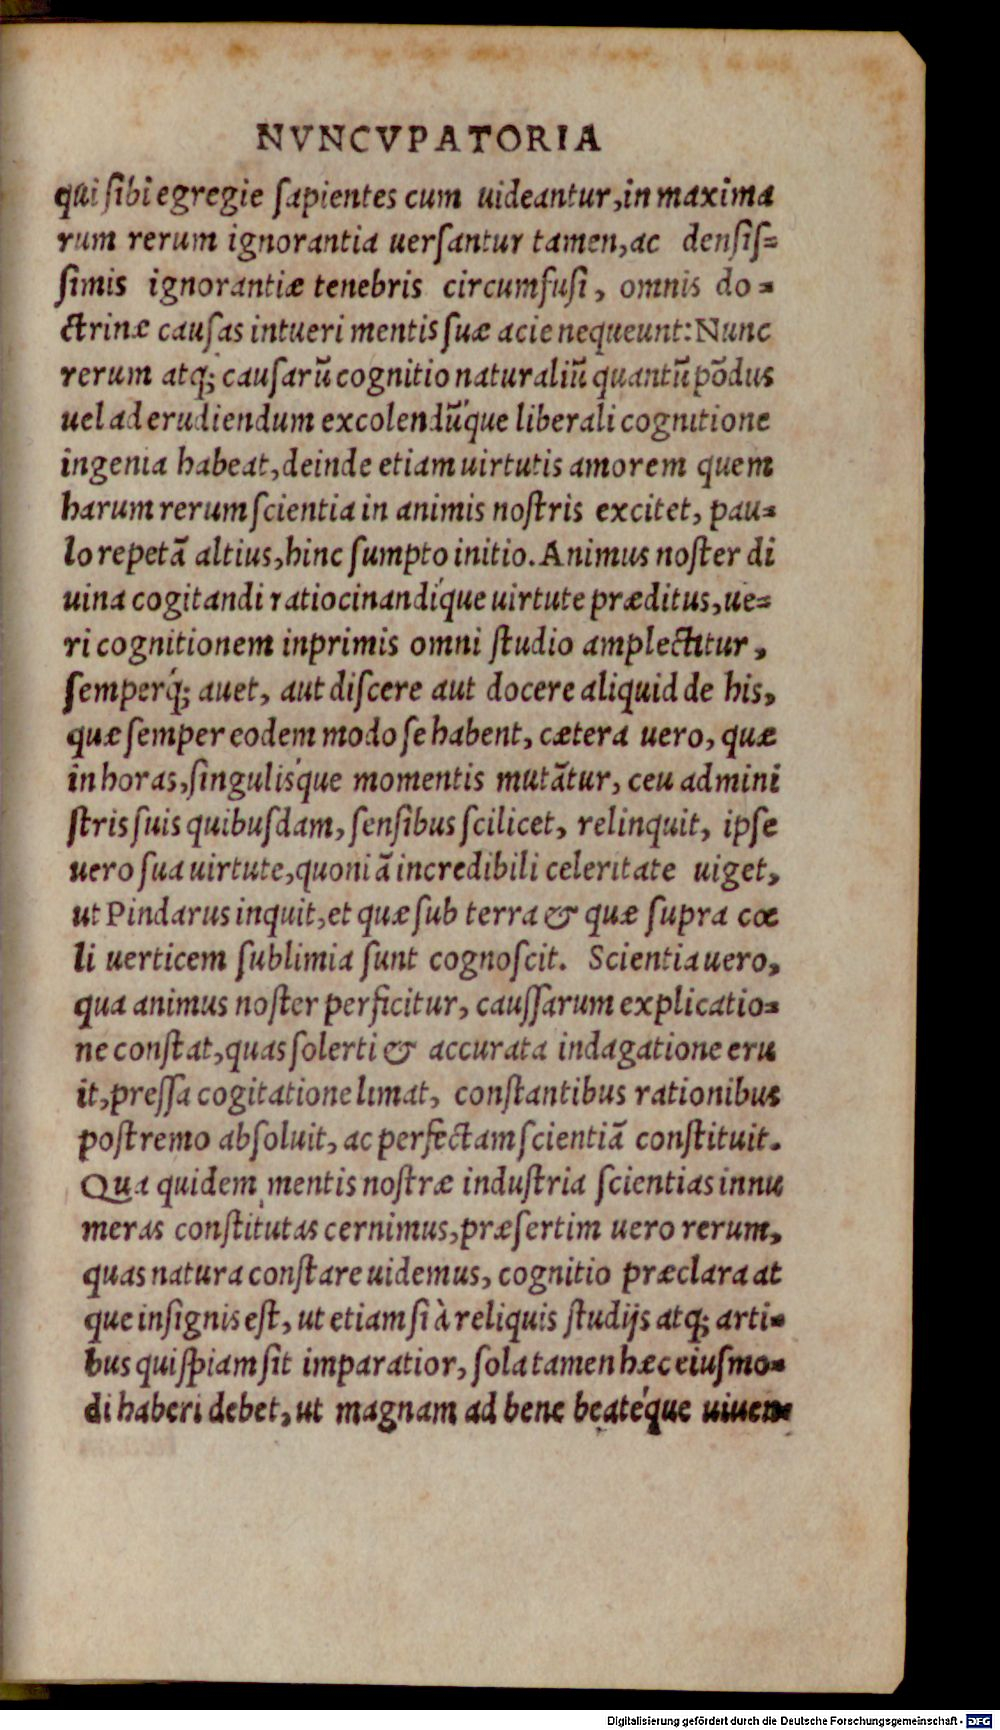 NVNCVPATORIA
qui ſibi egregie ſapientes cum uideantur, in maxima
rum rerum ignorantia uerſantur tamen, ac denſiſ=
ſimis ignorantiæ tenebris circumfuſi, omnis do=
ctrinæ cauſas intueri mentis ſuæ acie nequeunt: Nunc
rerum atq; cauſarũ cognitio naturaliũ quantũ põdus
uel ad erudiendum excolendṹque liberali cognitione
ingenia habeat, deinde etiam uirtutis amorem quem
harum rerum ſcientia in animis noſtris excitet, pau=
lo repetã altius, hinc ſumpto initio. Animus noſter di
uina cogitandi ratiocinandíque uirtute præditus, ue=
ri cognitionem inprimis omni ſtudio amplectitur,
ſemperq́; auet, aut diſcere aut docere aliquid de his,
quæ ſemper eodem modo ſe habent, cætera uero, quæ
in horas, ſinguliśque momentis mutãtur, ceu admini
ſtris ſuis quibuſdam, ſenſibus ſcilicet, relinquit, ipſe
uero ſua uirtute, quoniã incredibili celeritate uiget,
ut Pindarus inquit, et quæ ſub terra & quæ ſupra cœ
li uerticem ſublimia ſunt cognoſcit. Scientia uero,
qua animus noſter perficitur, cauſſarum explicatio=
ne conſtat, quas ſolerti & accurata indagatione eru
it, preſſa cogitatione limat, conſtantibus rationibus
poſtremo abſoluit, ac perfectam ſcientiã conſtituit.
Qua quidem mentis noſtræ induſtria ſcientias innu
meras conſtitutas cernimus, præſertim uero rerum,
quas natura conſtare uidemus, cognitio præclara at
que inſignis eſt, ut etiam ſi à reliquis ſtudijs atq; arti=
bus quiſpiam ſit imparatior, ſola tamen hæc eiuſmo=
di haberi debet, ut magnam ad bene beatéque uiuen=
Digitalisierung gefördert durch die Deutsche Forschungsgemeinschaft - DFG